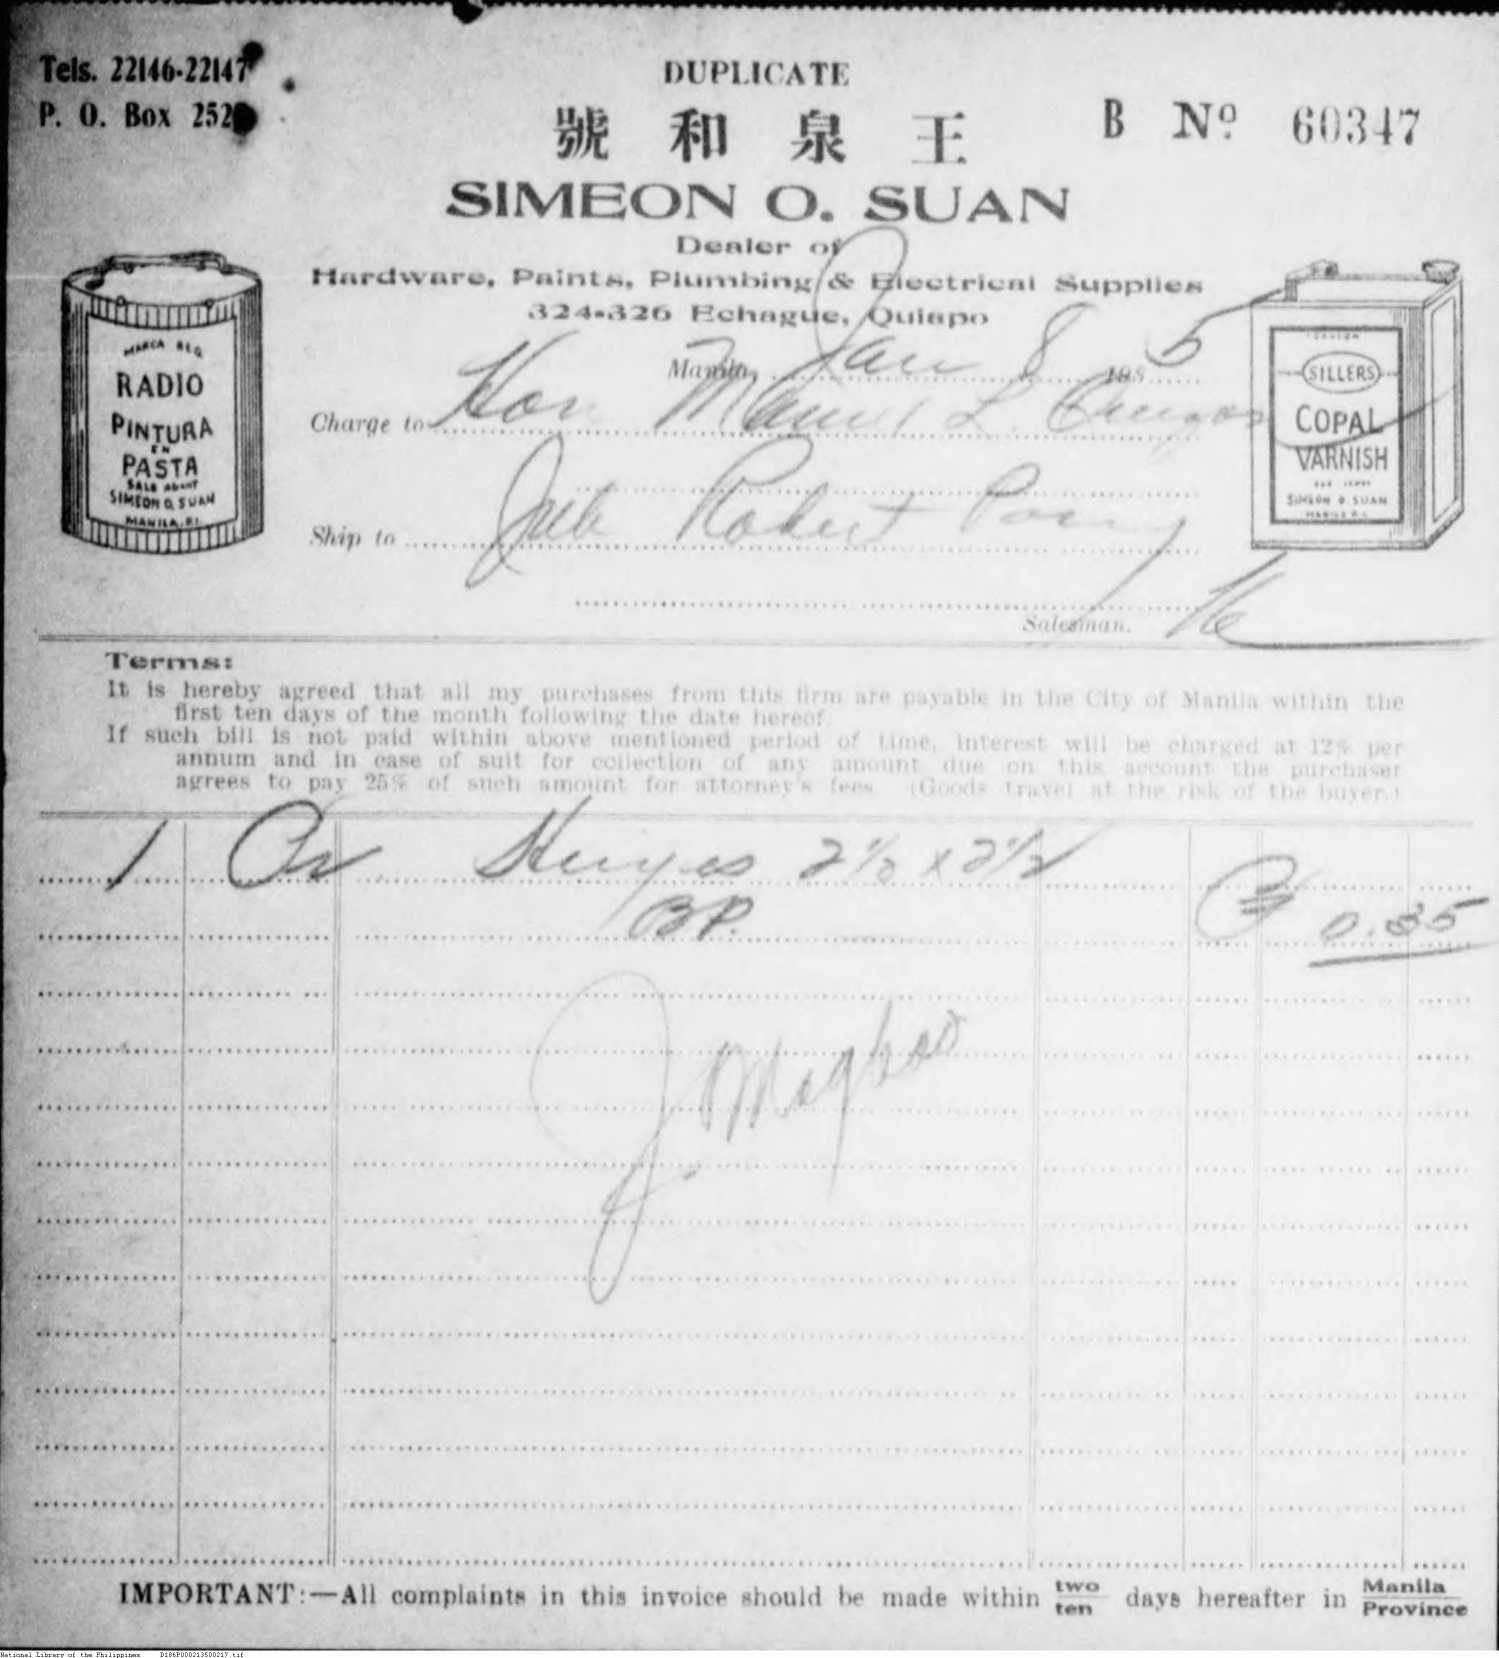 Tels. 22146-22147
P. O. Box 252
DUPLICATE
B Nº 60347
號和泉王
SIMEON O. SUAN
Dealer of
Hardware, Paints, Plumbing & Electrical Supplies
324-326 Echague, Quiapo
Manila, Jan 8 193 5
Charge to Hon Manuel L. Quezon
Ship to Robert
Salesman.
MARCA REG.
RADIO
PINTURA
EN
PASTA
SALE AGENT
SIMEON O. SUAN
MANILA, P.I.
SILLERS
COPAL
VARNISH
SIMEON O. SUAN
MANILA P.I.
Terms:
It is hereby agreed that all my purchases from this firm are payable in the City of Manila within the
first ten days of the month following the date hereof.
If such bill is not paid within above mentioned period of time, interest will be charged at 12% per
annum and in case of suit for collection of any amount due on this account the purchaser
agrees to pay 25% of such amount for attorney's fees (Goods travel at the risk of the buyer.)
1 Pr Hinges 2 1/2 x 2 1/2
BP. 0.35
IMPORTANT:—All complaints in this invoice should be made within two/ten days hereafter in Manila/Province
National Library of the Philippines D186P000213500217.tif